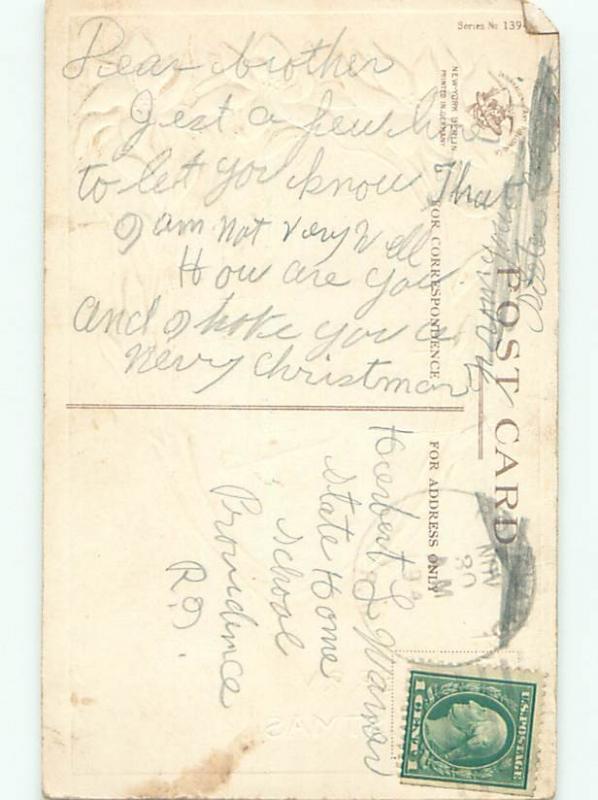 Series No 139
NEW-YORK BERLIN
PRINTED IN GERMANY
POST CARD
FOR CORRESPONDENCE
FOR ADDRESS ONLY
Dear brother
Jest a few line
to let you know That
I am not very well
How are you
and I hope you a
mery christmas
Herbert L Warner
State Home
School
Providence
R.I.
U.S. POSTAGE
1 CENT 1